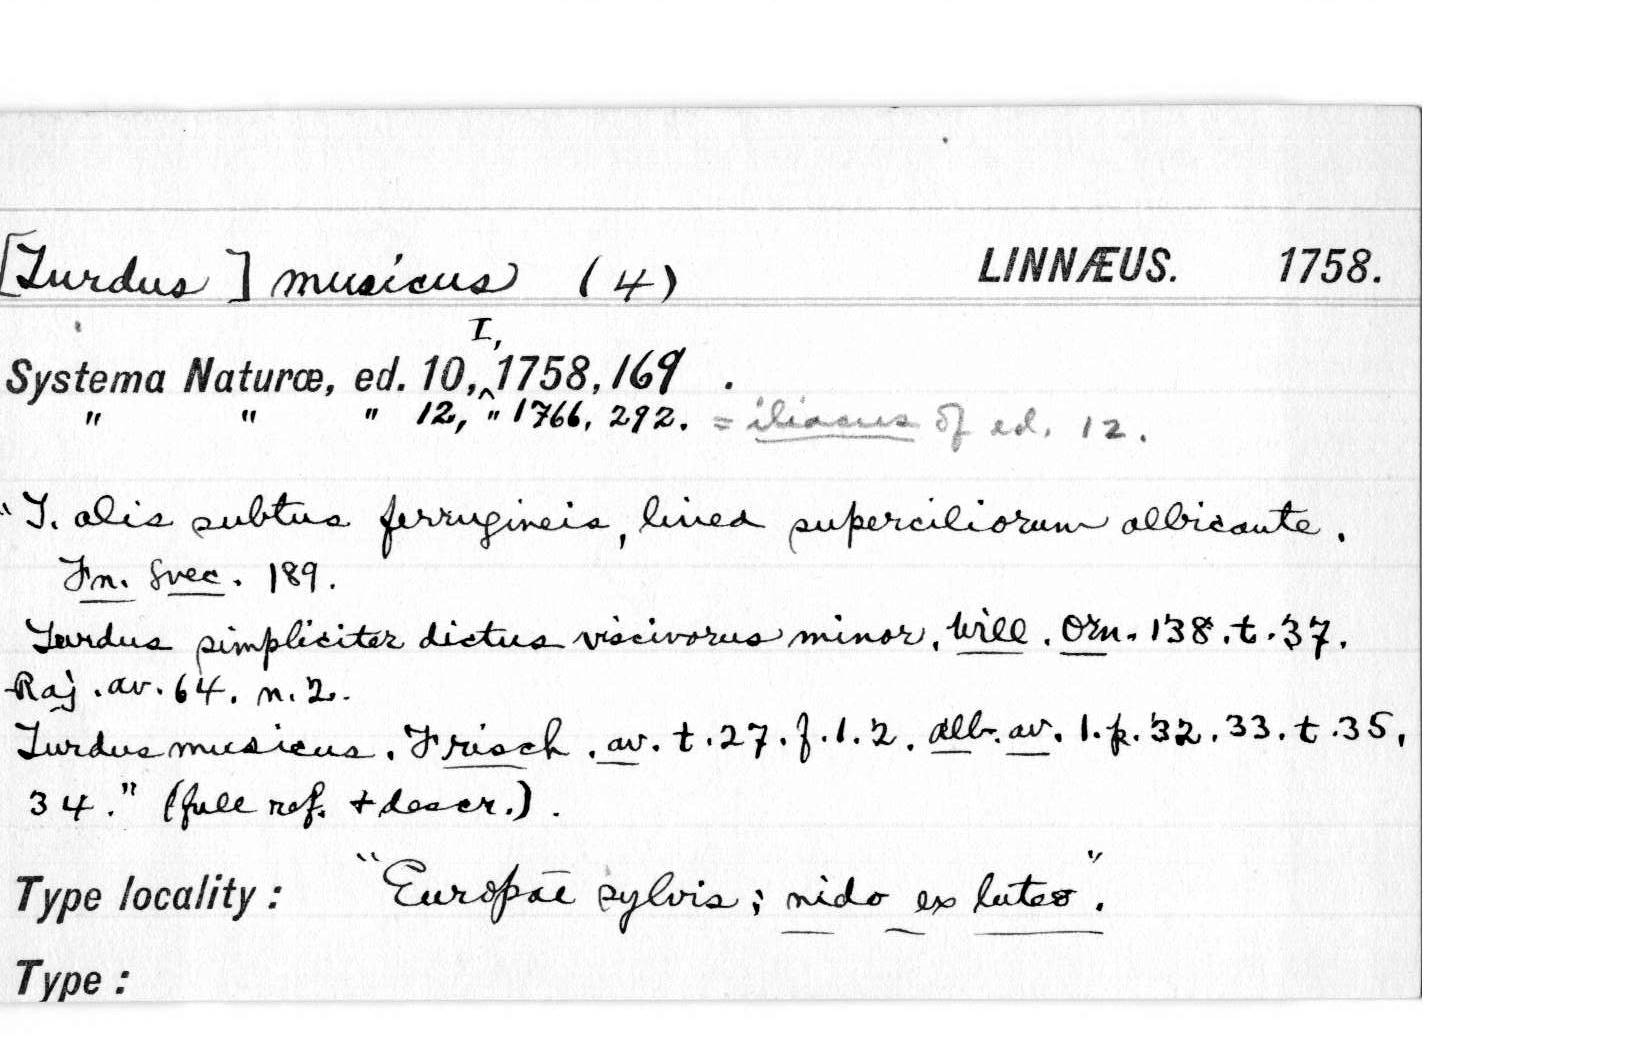 [Turdus] musicus (4) LINNÆUS. 1758.
I,
Systema Naturæ, ed. 10,^1758,169 .
" " " 12, " 1766, 292. = iliacus of ed. 12.
"T. alis subtus ferrugineis, linea superciliorum albicante.
Fn. Svec. 189.
Turdus simpliciter dictus viscivorus minor. Will. Orn. 138. t. 37.
Raj. av. 64. n. 2.
Turdus musicus. Frisch. av. t. 27. f. 1. 2. alb. av. 1. p. 32. 33. t. 35,
34." (full ref. + descr.).
Type locality: "Europae sylvis; nido ex luteo".
Type: